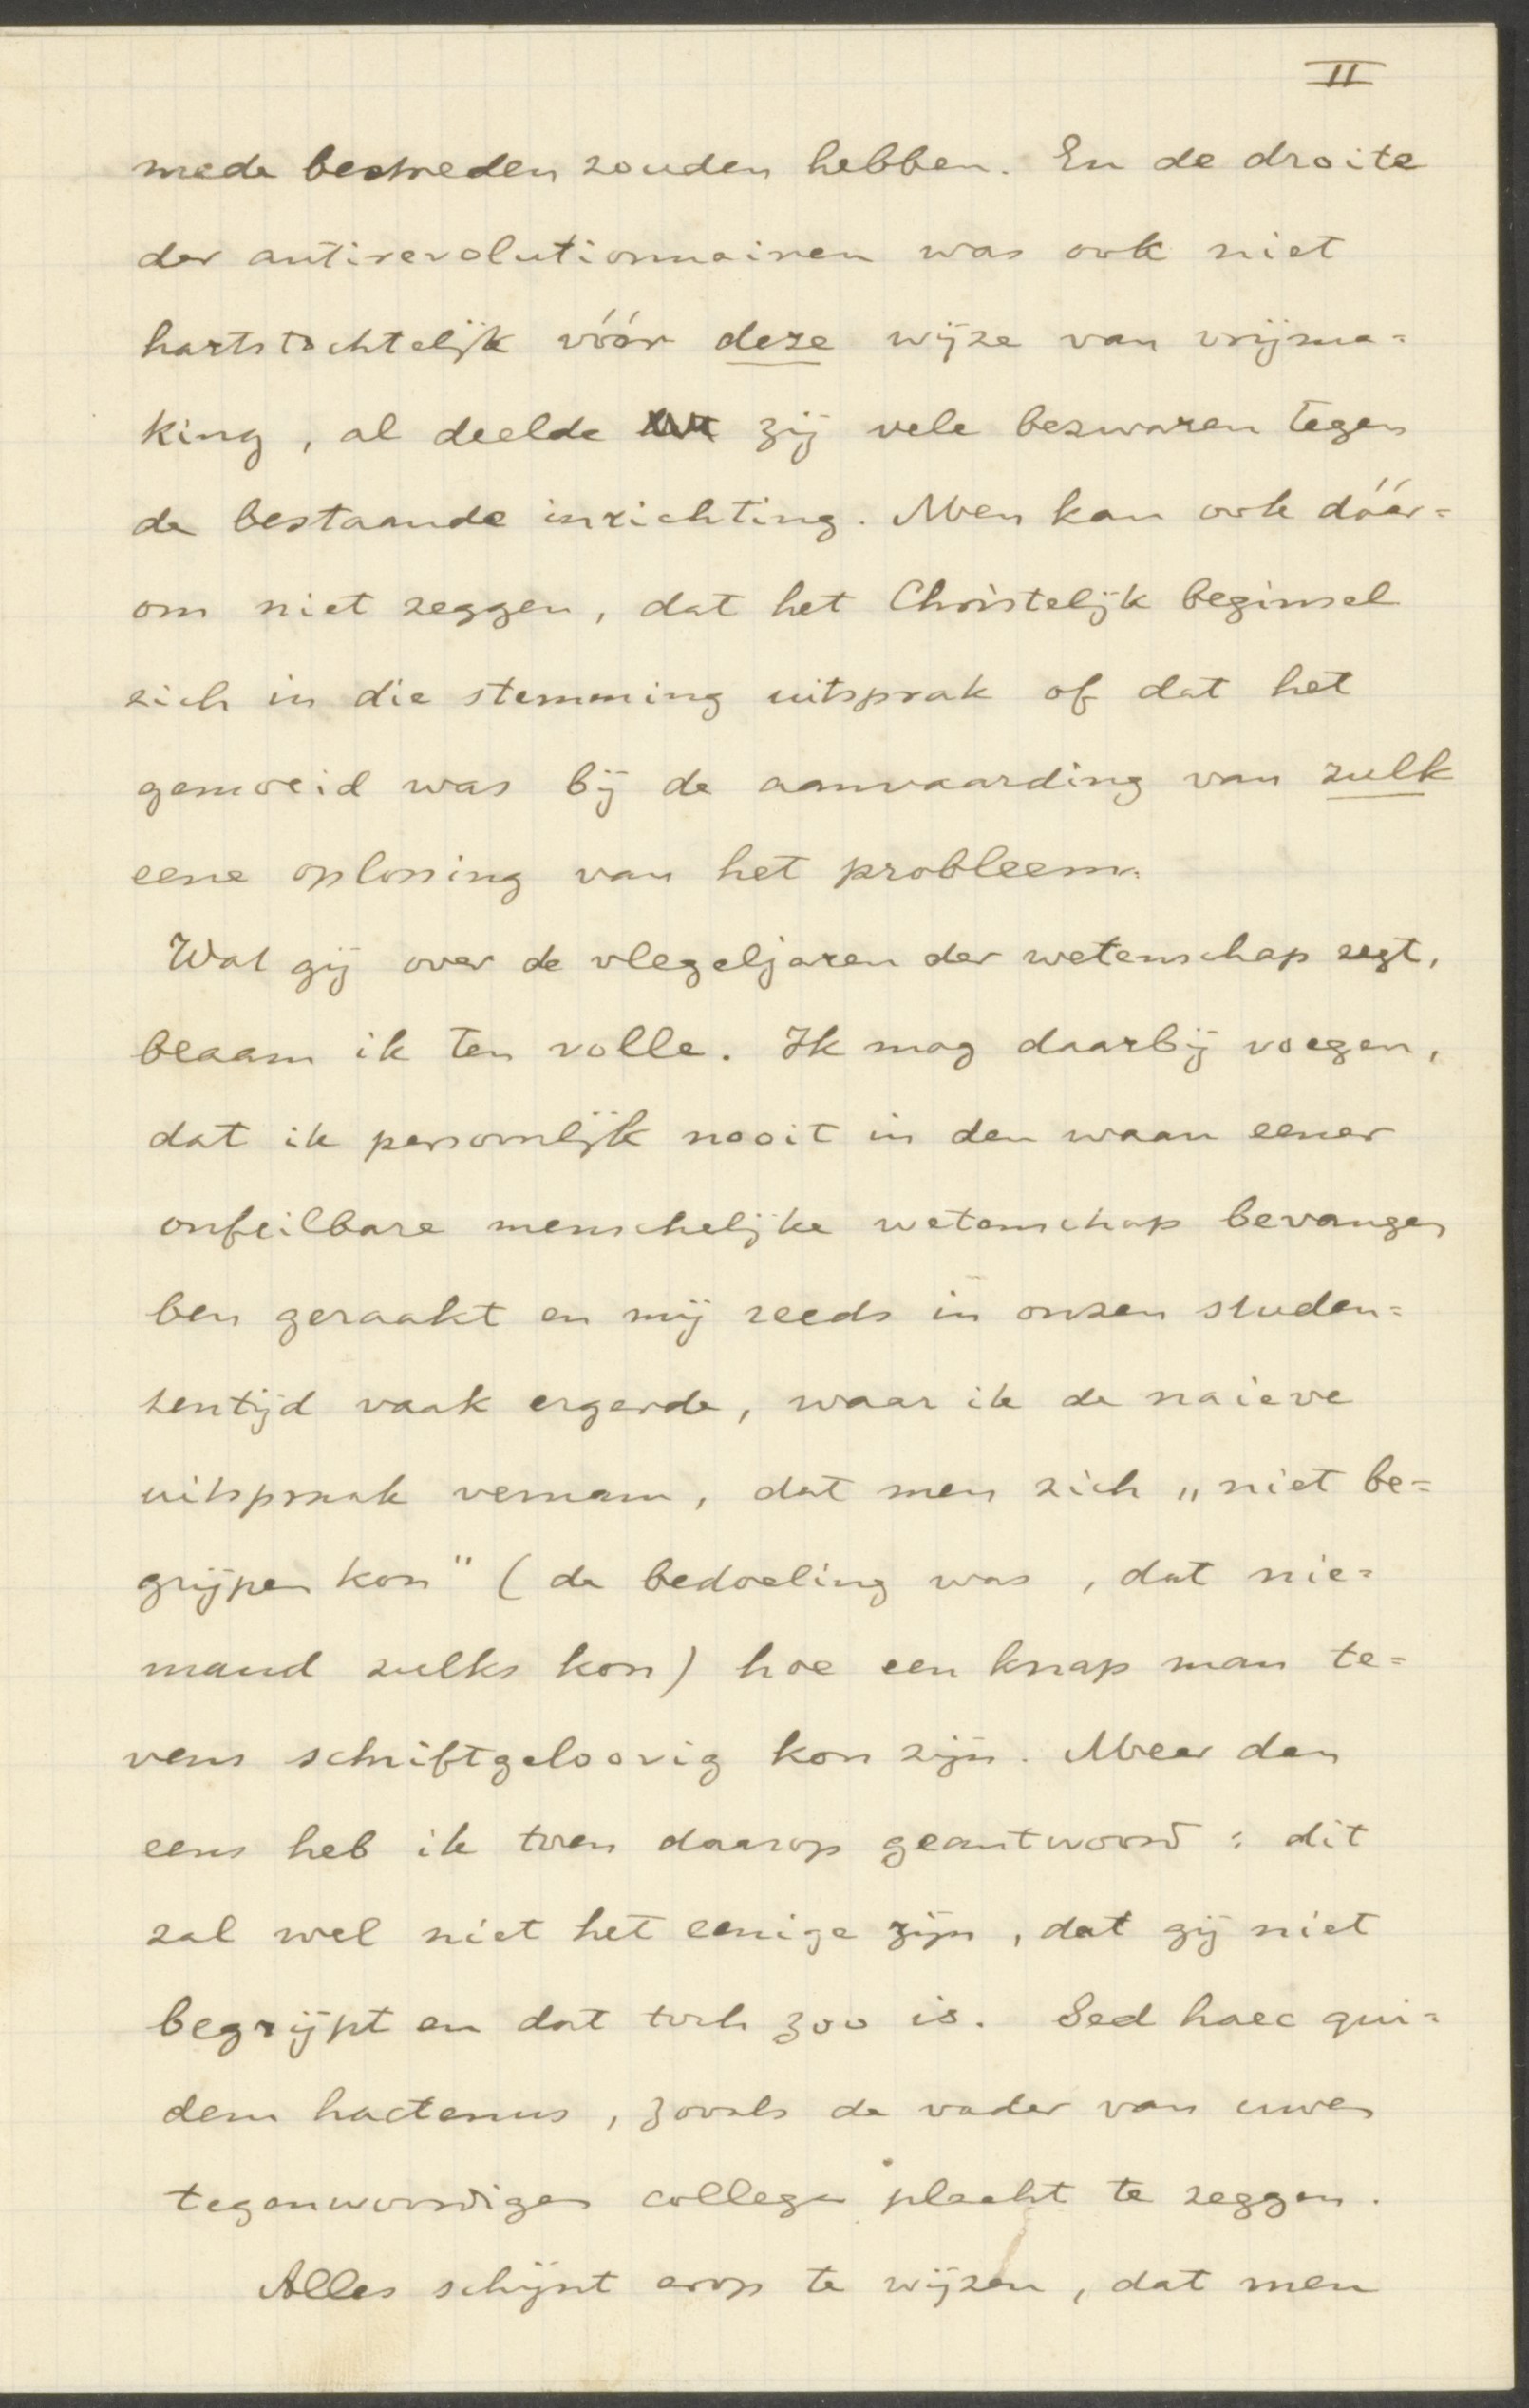 II
mede bestreden zouden hebben. En de droite
der antirevolutionnairen was ook niet
hartstochtelijk vóór deze wijze van vrijma=
king, al deelde zij vele bezwaren tegen
de bestaande inrichting. Men kan ook dáár=
om niet zeggen, dat het Christelijk beginsel
zich in die stemming uitsprak of dat het
gemoeid was bij de aanvaarding van zulk
eene oplossing van het probleem.
Wat gij over de vlegeljaren der wetenschap zegt,
beaam ik ten volle. Ik mag daarbij voegen,
dat ik persoonlijk nooit in den waan eener
onfeilbare menschelijke wetenschap bevangen
ben geraakt en mij reeds in onzen studen=
tentijd vaak ergerde, waar ik de naieve
uitspraak vernam, dat men zich „niet be=
grijpen kon" (de bedoeling was, dat nie=
mand zulks kon) hoe een knap man te=
vens schriftgeloovig kon zijn. Meer dan
eens heb ik toen daarop geantwoord: dit
zal wel niet het eenige zijn, dat gij niet
begrijpt en dat toch zoo is. Sed haec qui=
dem hactenus, zooals de vader van uwen
tegenwoordigen collega placht te zeggen.
Alles schijnt erop te wijzen, dat men